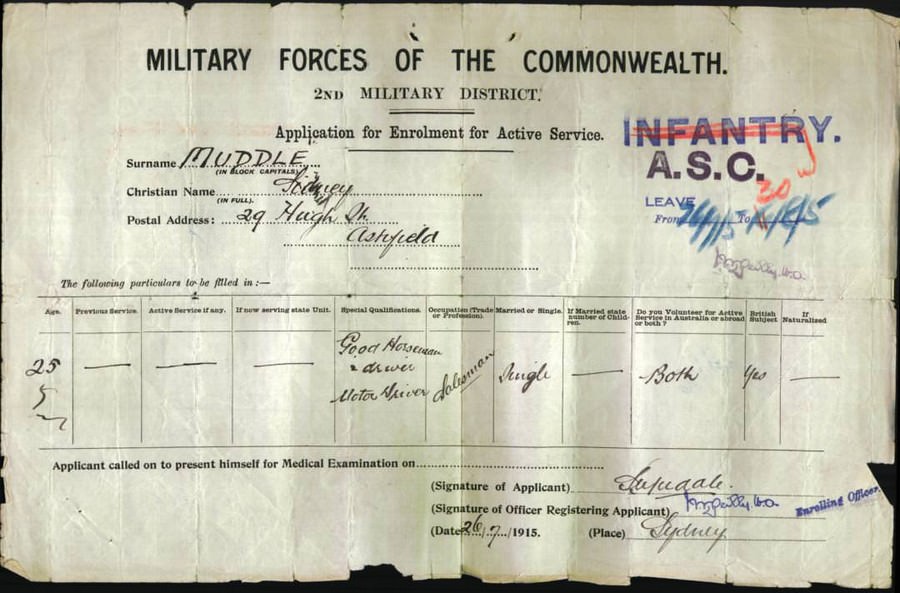 MILITARY FORCES OF THE COMMONWEALTH.
2ND MILITARY DISTRICT.
Application for Enrolment for Active Service.
INFANTRY.
A.S.C.
30
LEAVE
From To
Surname MUDDLE
(IN BLOCK CAPITALS)
Christian Name Sidney
(IN FULL).
Postal Address: 29 Hugh St.
Ashfield
The following particulars to be filled in :—
Age. Previous Service. Active Service if any. If now serving state Unit. Special Qualifications. Occupation (Trade or Profession). Married or Single. If Married state number of Children. Do you Volunteer for Active Service in Australia or abroad or both ? British Subject If Naturalized
25 — — — Good Horseman & driver Motor Driver Salesman Single — Both Yes —
5
Applicant called on to present himself for Medical Examination on
(Signature of Applicant)
(Signature of Officer Registering Applicant)
Enrolling Officer.
(Date 26/7/1915. (Place) Sydney